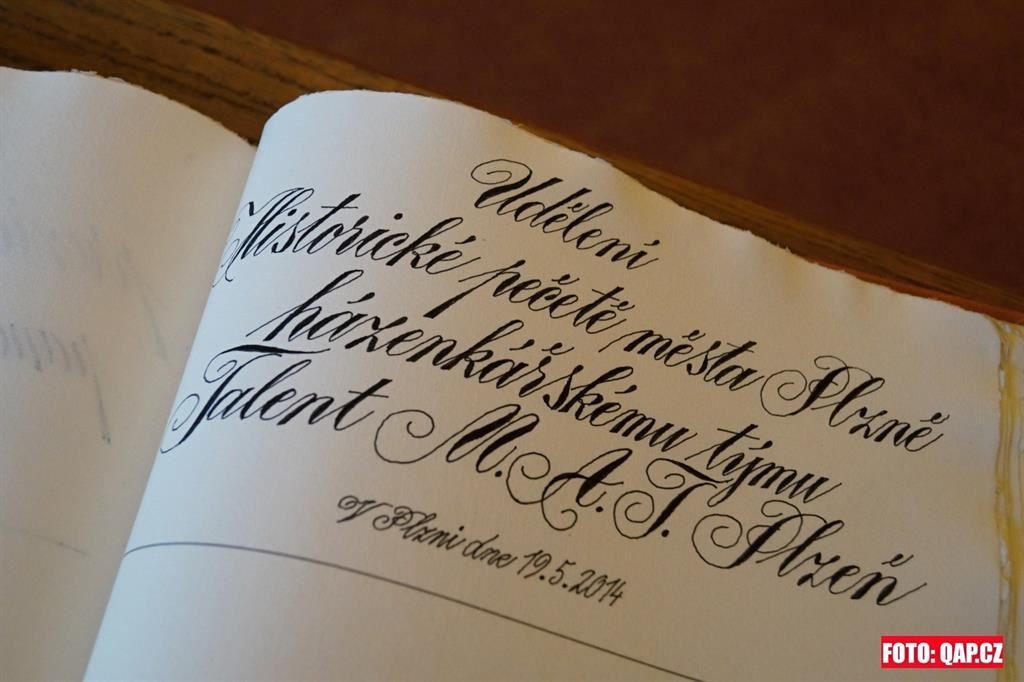 Udělení
Historické pečetě města Plzně
házenkářskému týmu
Talent M.A.T. Plzeň
V Plzni dne 19.5.2014
FOTO: QAP.CZ